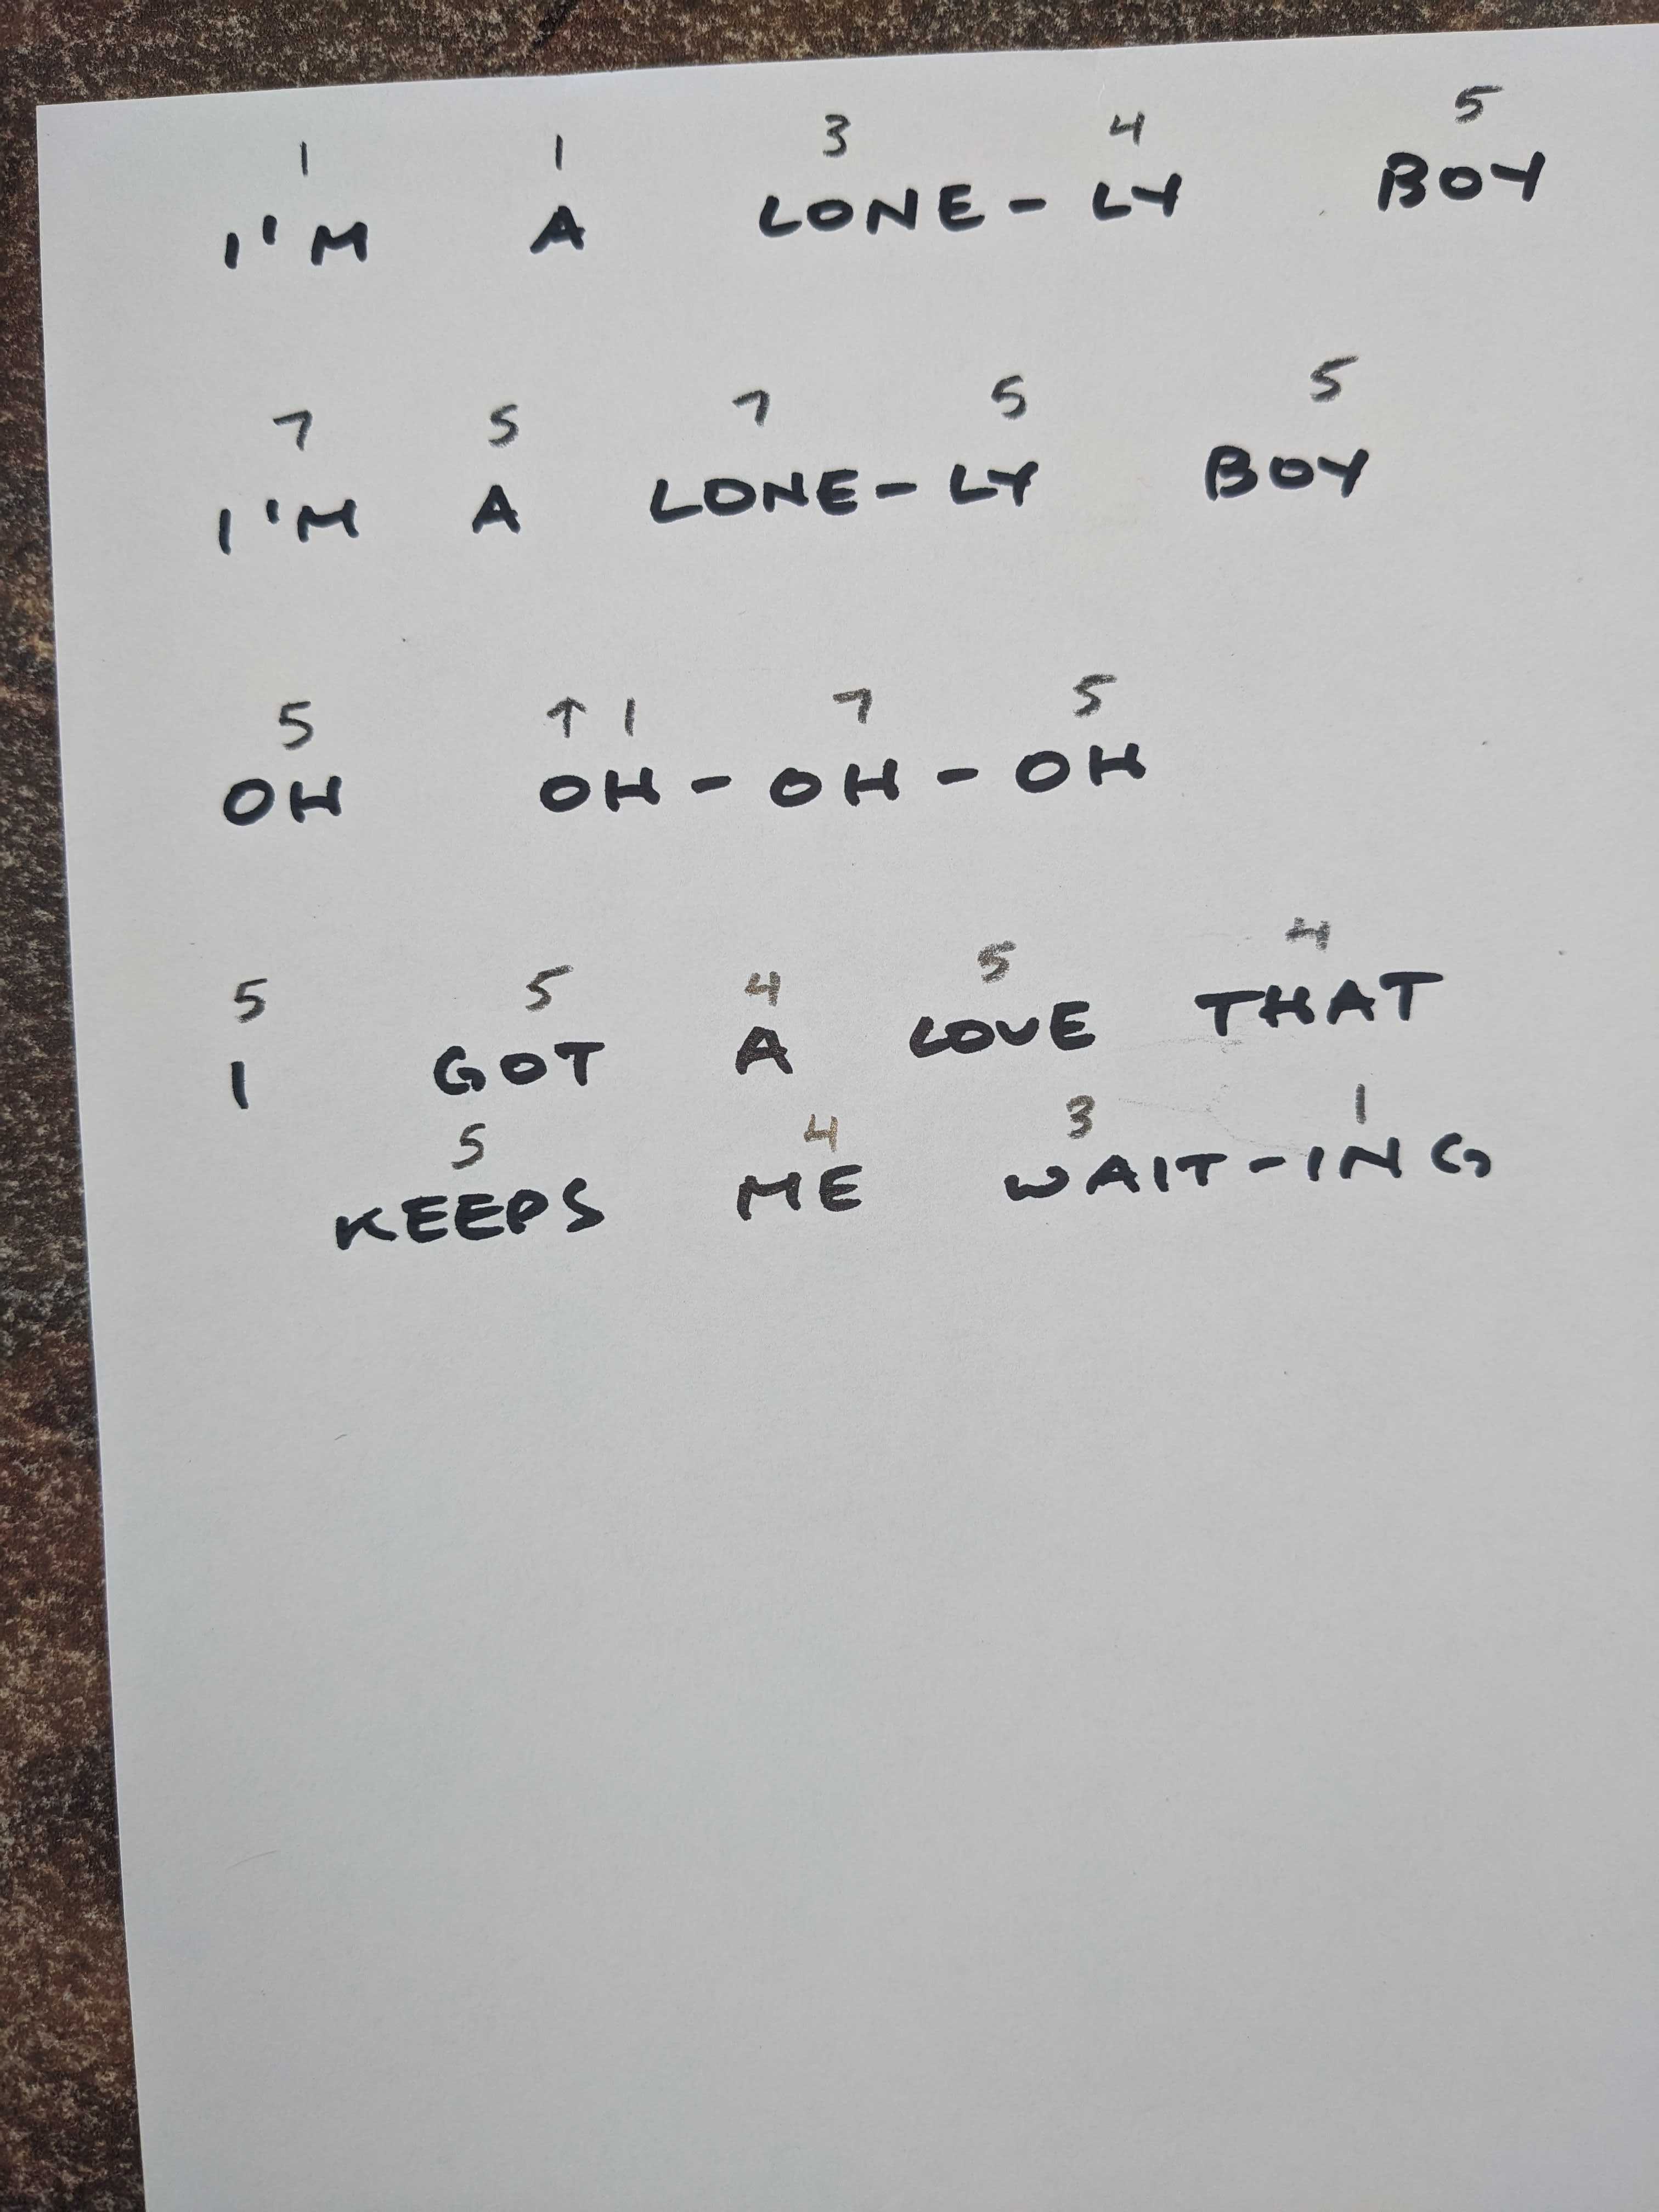 1 1 3 4 5
I'M A LONE-LY BOY
7 5 7 5 5
I'M A LONE-LY BOY
5 ↑1 7 5
OH OH-OH-OH
5 5 4 5 4
I GOT A LOVE THAT
5 4 3 1
KEEPS ME WAIT-ING